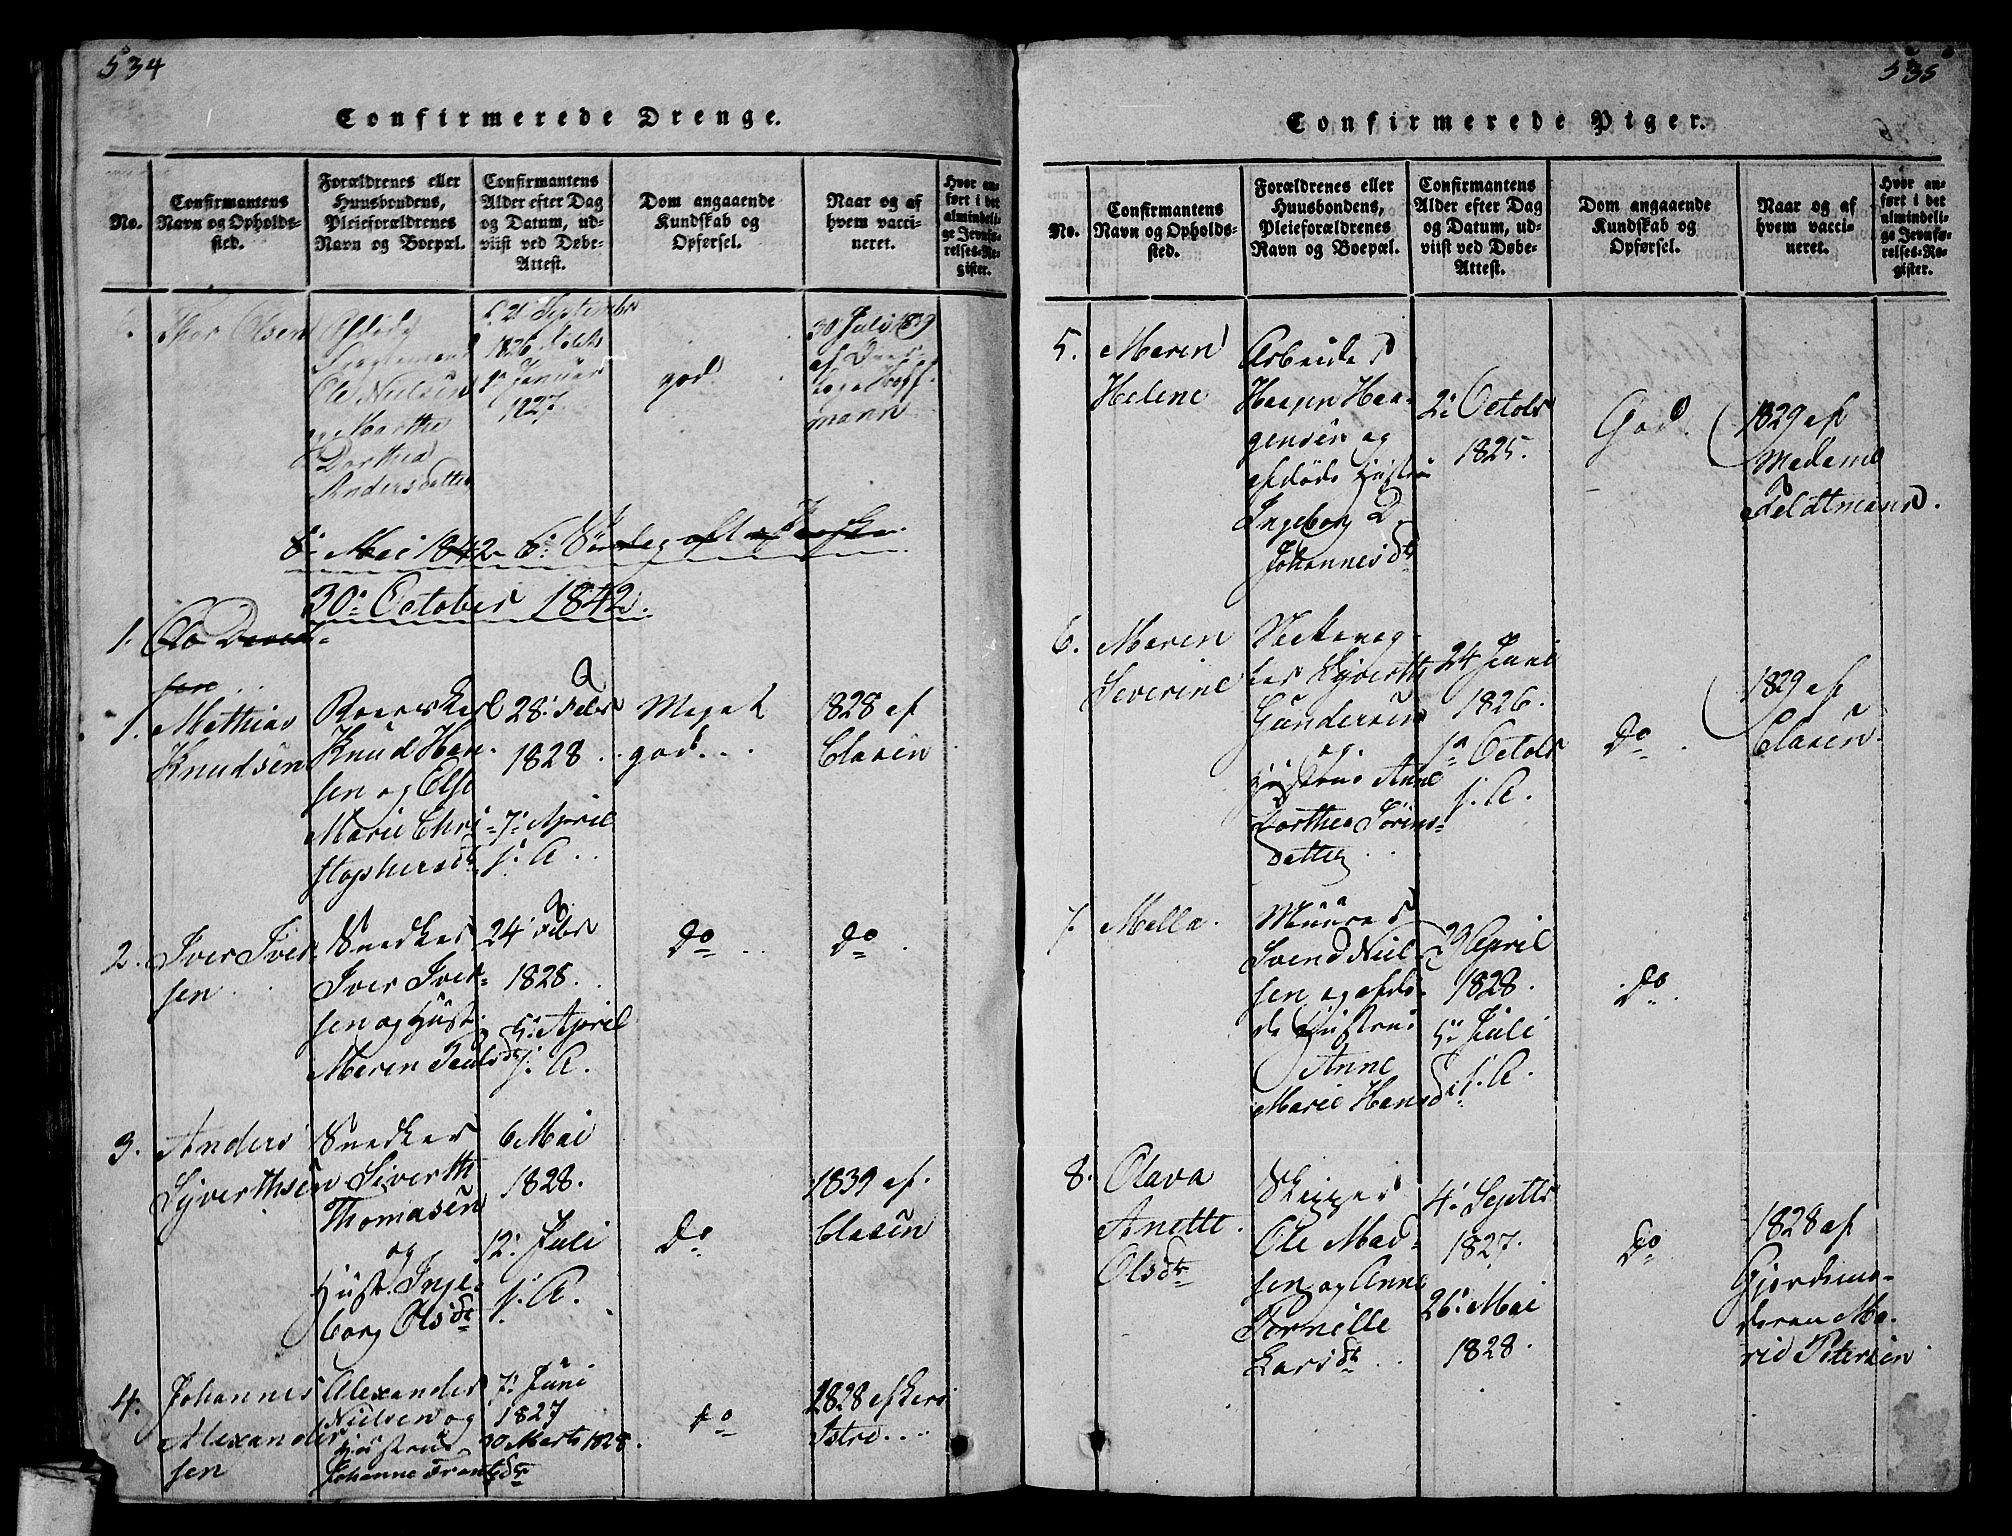 534
Confirmerede Drenge.
No.
Confirmantens
Navn og Opholds-
sted.
Forældrenes eller
Huusbondens,
Pleieforældrenes
Navn og Boepæl.
Confirmantens
Alder efter Dag
og Datum, ud-
viist ved Døbe-
Attest.
Dom angaaende
Kundskab og
Opførsel.
Naar og af
hvem vacci-
neret.
Hvor an-
ført i det
almindeli-
ge Jevnfø-
relses-Re-
gister.
Thor Olsen
Ole Nielsen
og Marthe
Dorthea
Andersdatter
21 September
1826
Januar
1827.
god.
30 Juli 1839
af
mann
8: Mai 1842 6: Søndag
30: October 1842.
1.
1. Mathias
Knudsen
Knud Han-
sen og Else
Marie Chri-
stophersdt
28: Febr
1828
7: April
s: A.
Meget
god.
1828 af
Clasen
2. Iver Iver-
sen
Snedker
Iver Iver-
sen og Hust.
Maren Pauls dt
24: Febr
1828.
5: April
s: A.
do
do
3. Anders
Syverthsen
Snedker
Siverth
Thomasen
og
Hust. Inge-
borg Olsdt
6 Mai
1828.
12: Juli
s: A.
do
1839 af
Clasen
4. Johannes
Alexander
sen
Alexander
Nielsen og
Hustrue
Johanne Frantzdtr
7: Juni
1827
30 Marts 1828.
do
1828 af
535
Confirmerede Piger.
No.
Confirmantens
Navn og Opholds-
sted.
Forældrenes eller
Huusbondens,
Pleieforældrenes
Navn og Boepæl.
Confirmantens
Alder efter Dag
og Datum, ud-
viist ved Døbe-
Attest.
Dom angaaende
Kundskab og
Opførsel.
Naar og af
hvem vacci-
neret.
Hvor an-
ført i det
almindeli-
ge Jevnfø-
relses-Re-
gister.
5. Maren
Helene
Arbeider
Haagen Haa-
gensen og
afdøde Hustru
Ingeborg
Johannesdt
2: Octobr
1825.
God.
1829 af
Madame
Feldtmann.
6. Maren
Severine
Syverth
Gundersen
og
Hustrue Anne
Dorthea Sørens-
datter
24 Juni
1826.
1: Octobr
s: A.
do
1829 af
Clasen
7. Mella.
Muurer
Svend Niel-
sen og afdø-
de Hustrue
Anne
Marie Hansdt
29 April
1828.
5: Juli
s: A.
do.
8. Olava
Anette
Olsdtr
Skipper
Ole Mad-
sen og Anne
Pernille
Larsdt
4: Septbr
1827.
26: Mai
1828.
do
1828 af
Gjordemo-
deren Ma-
rie Petersen